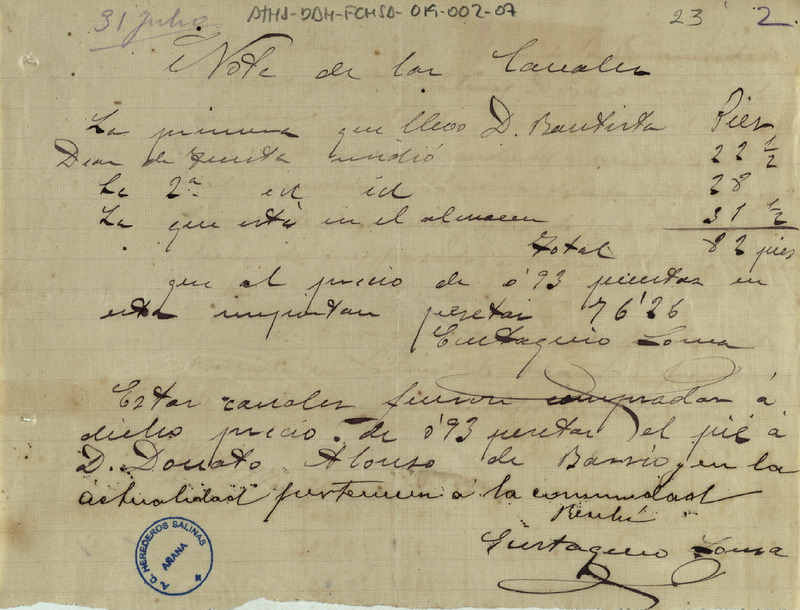 31 Julio
ATHS-DDH-FCHSA-019-002-07
23 2
Nota de las Canales
La primera que llevó D. Bautista Pies
de puesta midió 22 1/2
La 2ª id id 28
La que está en el almacen 31 1/2
Total 82 pies
que al precio de 0'93 puestas en
esta importan pesetas 76'26
Eustaquio Loma
Estas canales fueron compradas á
dicho precio de 0'93 pesetas el pié á
D. Donato Alonso de Barrio, en la
actualidad pertenecen á la comunidad
Recibí
Eustaquio Loma
HEREDEROS SALINAS
AÑANA